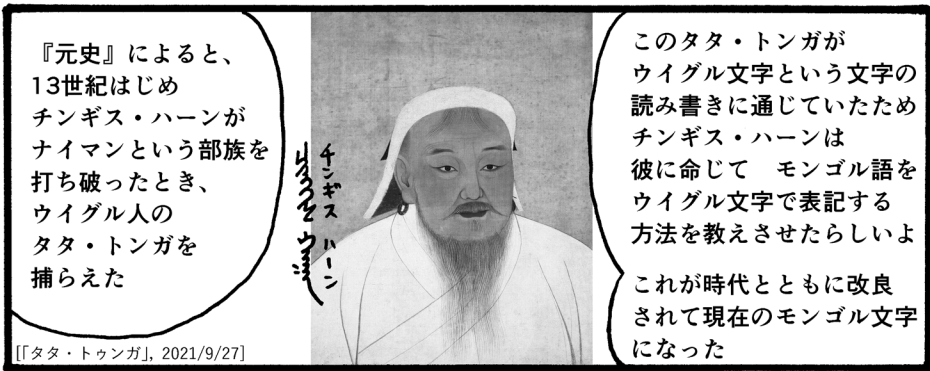 『元史』によると、
13世紀はじめ
チンギス・ハーンが
ナイマンという部族を
打ち破ったとき、
ウイグル人の
タタ・トンガを
捕らえた
[「タタ・トゥンガ」, 2021/9/27]
チンギス ハーン
このタタ・トンガが
ウイグル文字という文字の
読み書きに通じていたため
チンギス・ハーンは
彼に命じて モンゴル語を
ウイグル文字で表記する
方法を教えさせたらしいよ
これが時代とともに改良
されて現在のモンゴル文字
になった